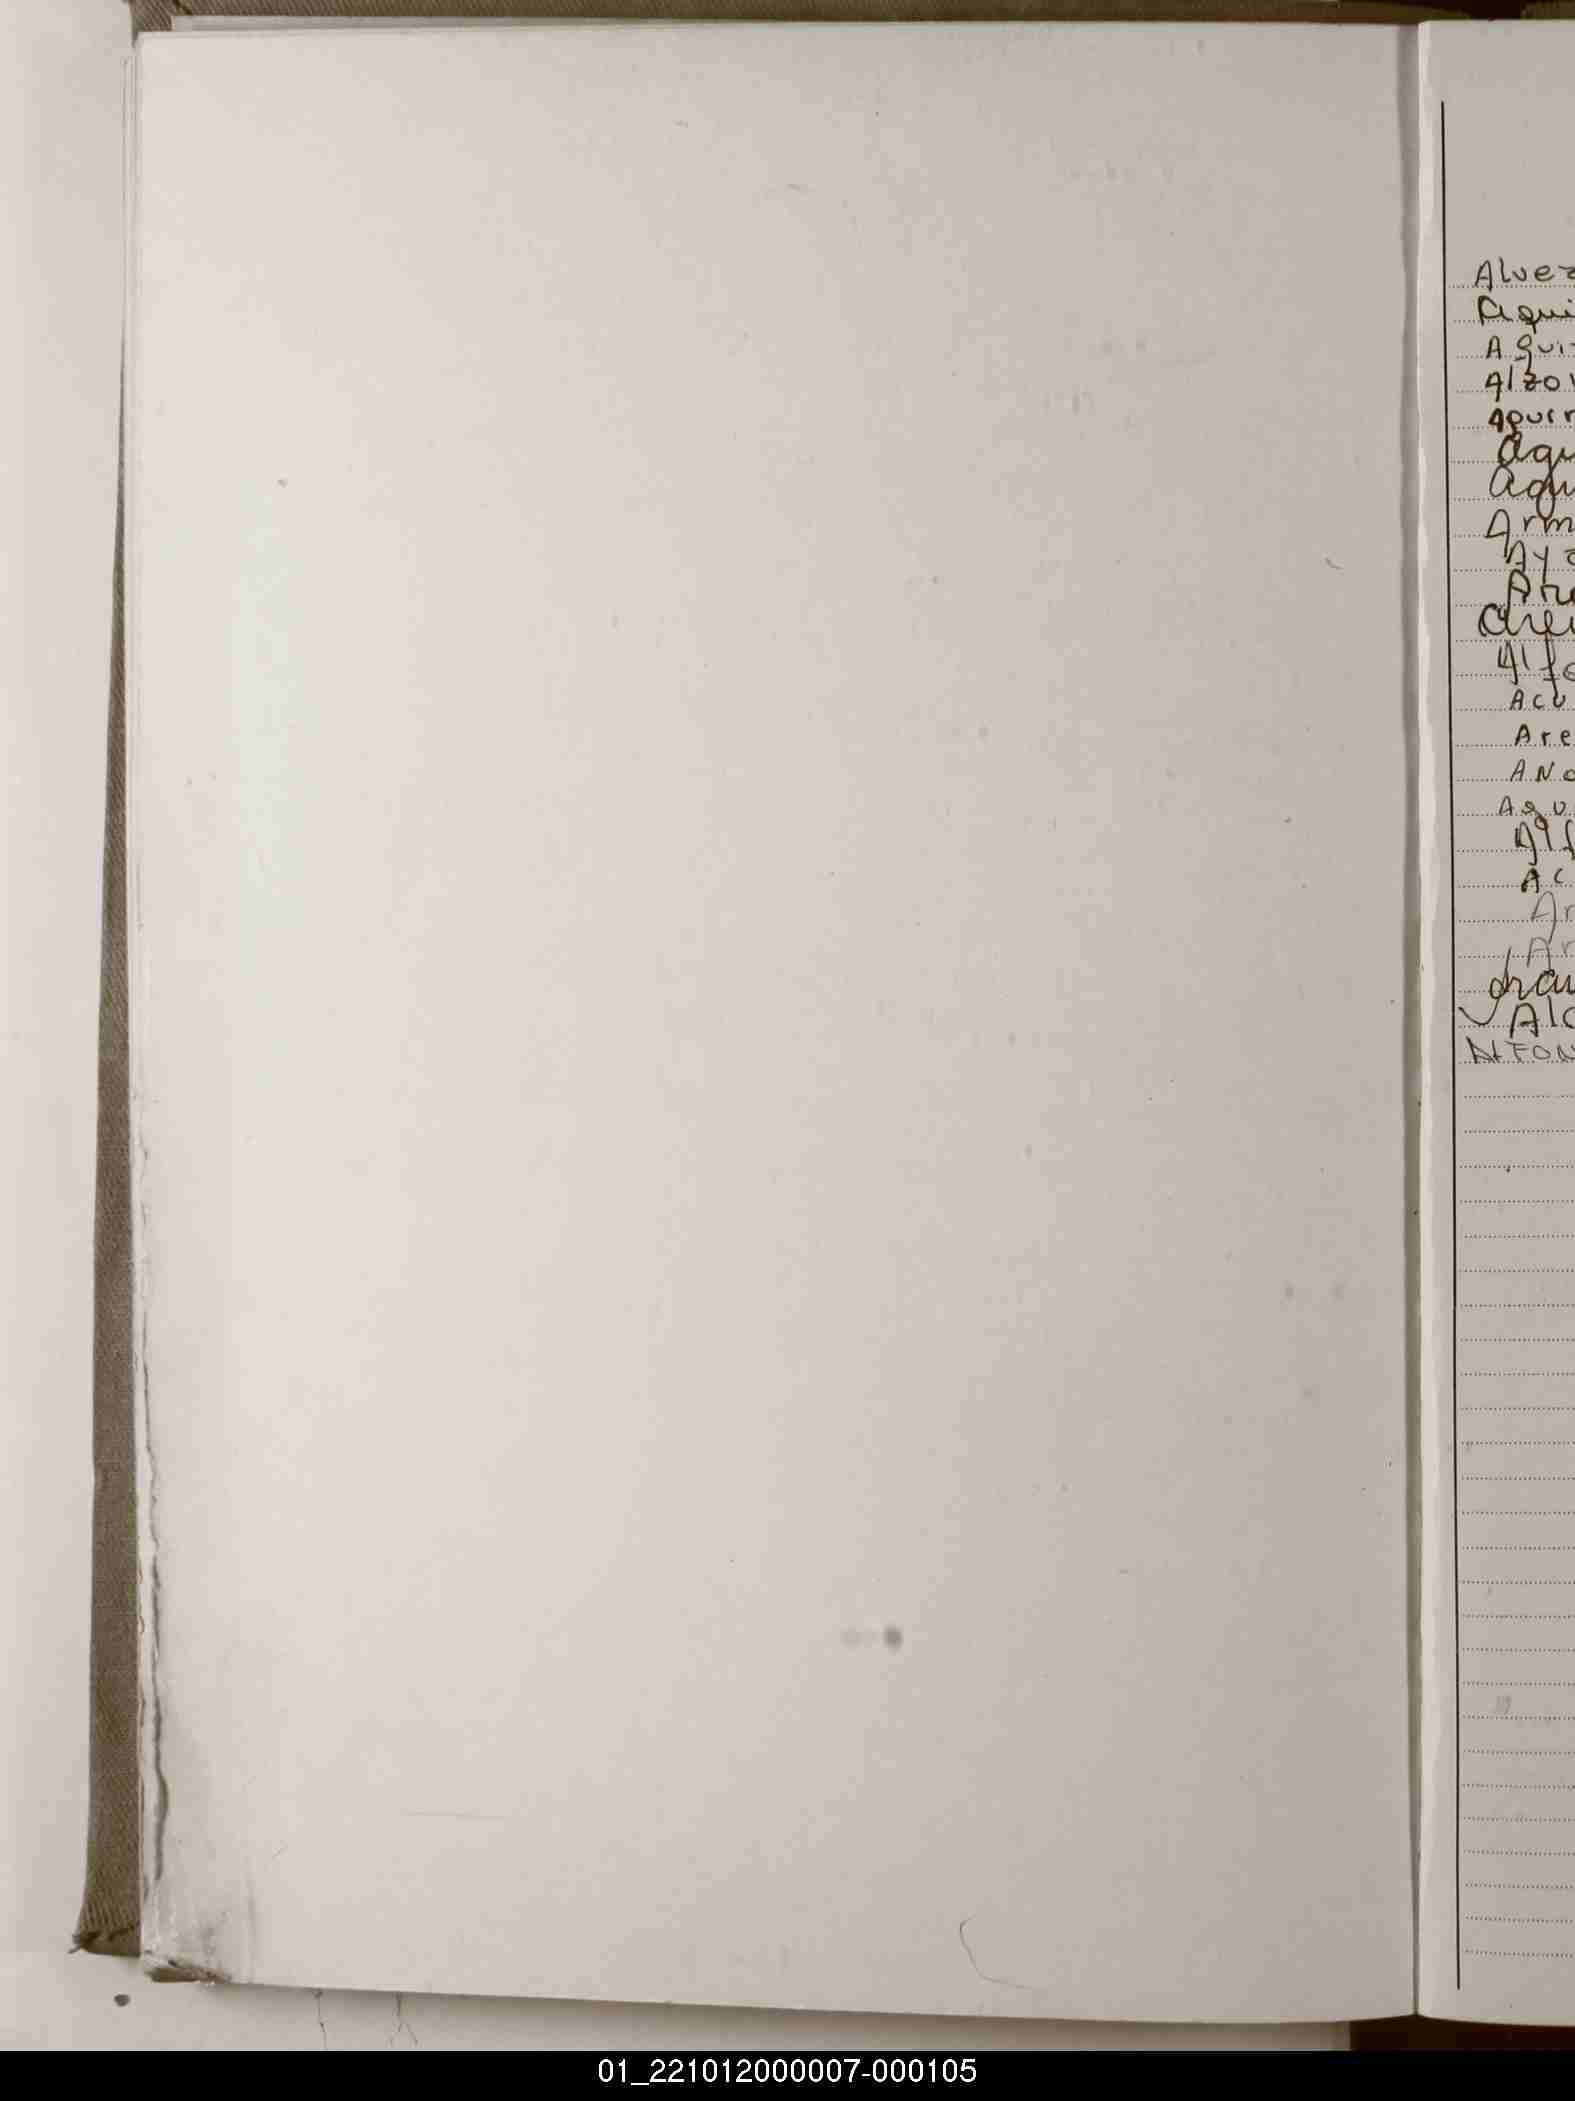 Alvez
Aqui
Agui
Alzo
Aguir
Agu
Agu
Arm
Aya
Are
Alfo
ACU
Are
AND
Agu
Alf
AC
Ar
Ar
Arau
Alc
ALFON
01_221012000007-000105